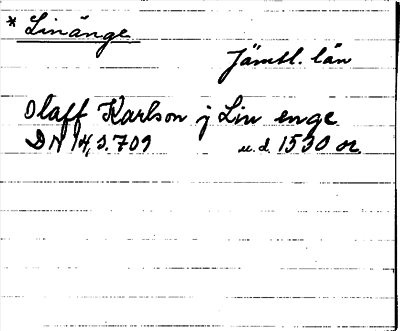 * Linänge
Jämtl. län
Olaff Karlson j Lin enge
DN 14, s. 709 u. d. 1530 or